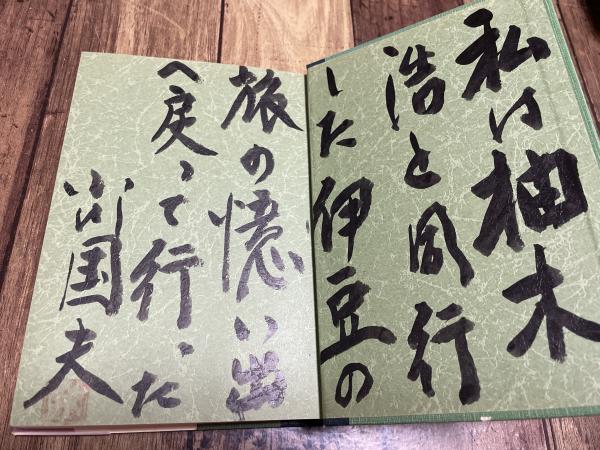 私は柚木
浩と同行
した伊豆の
旅の憶い出
へ戻って行った
小川国夫